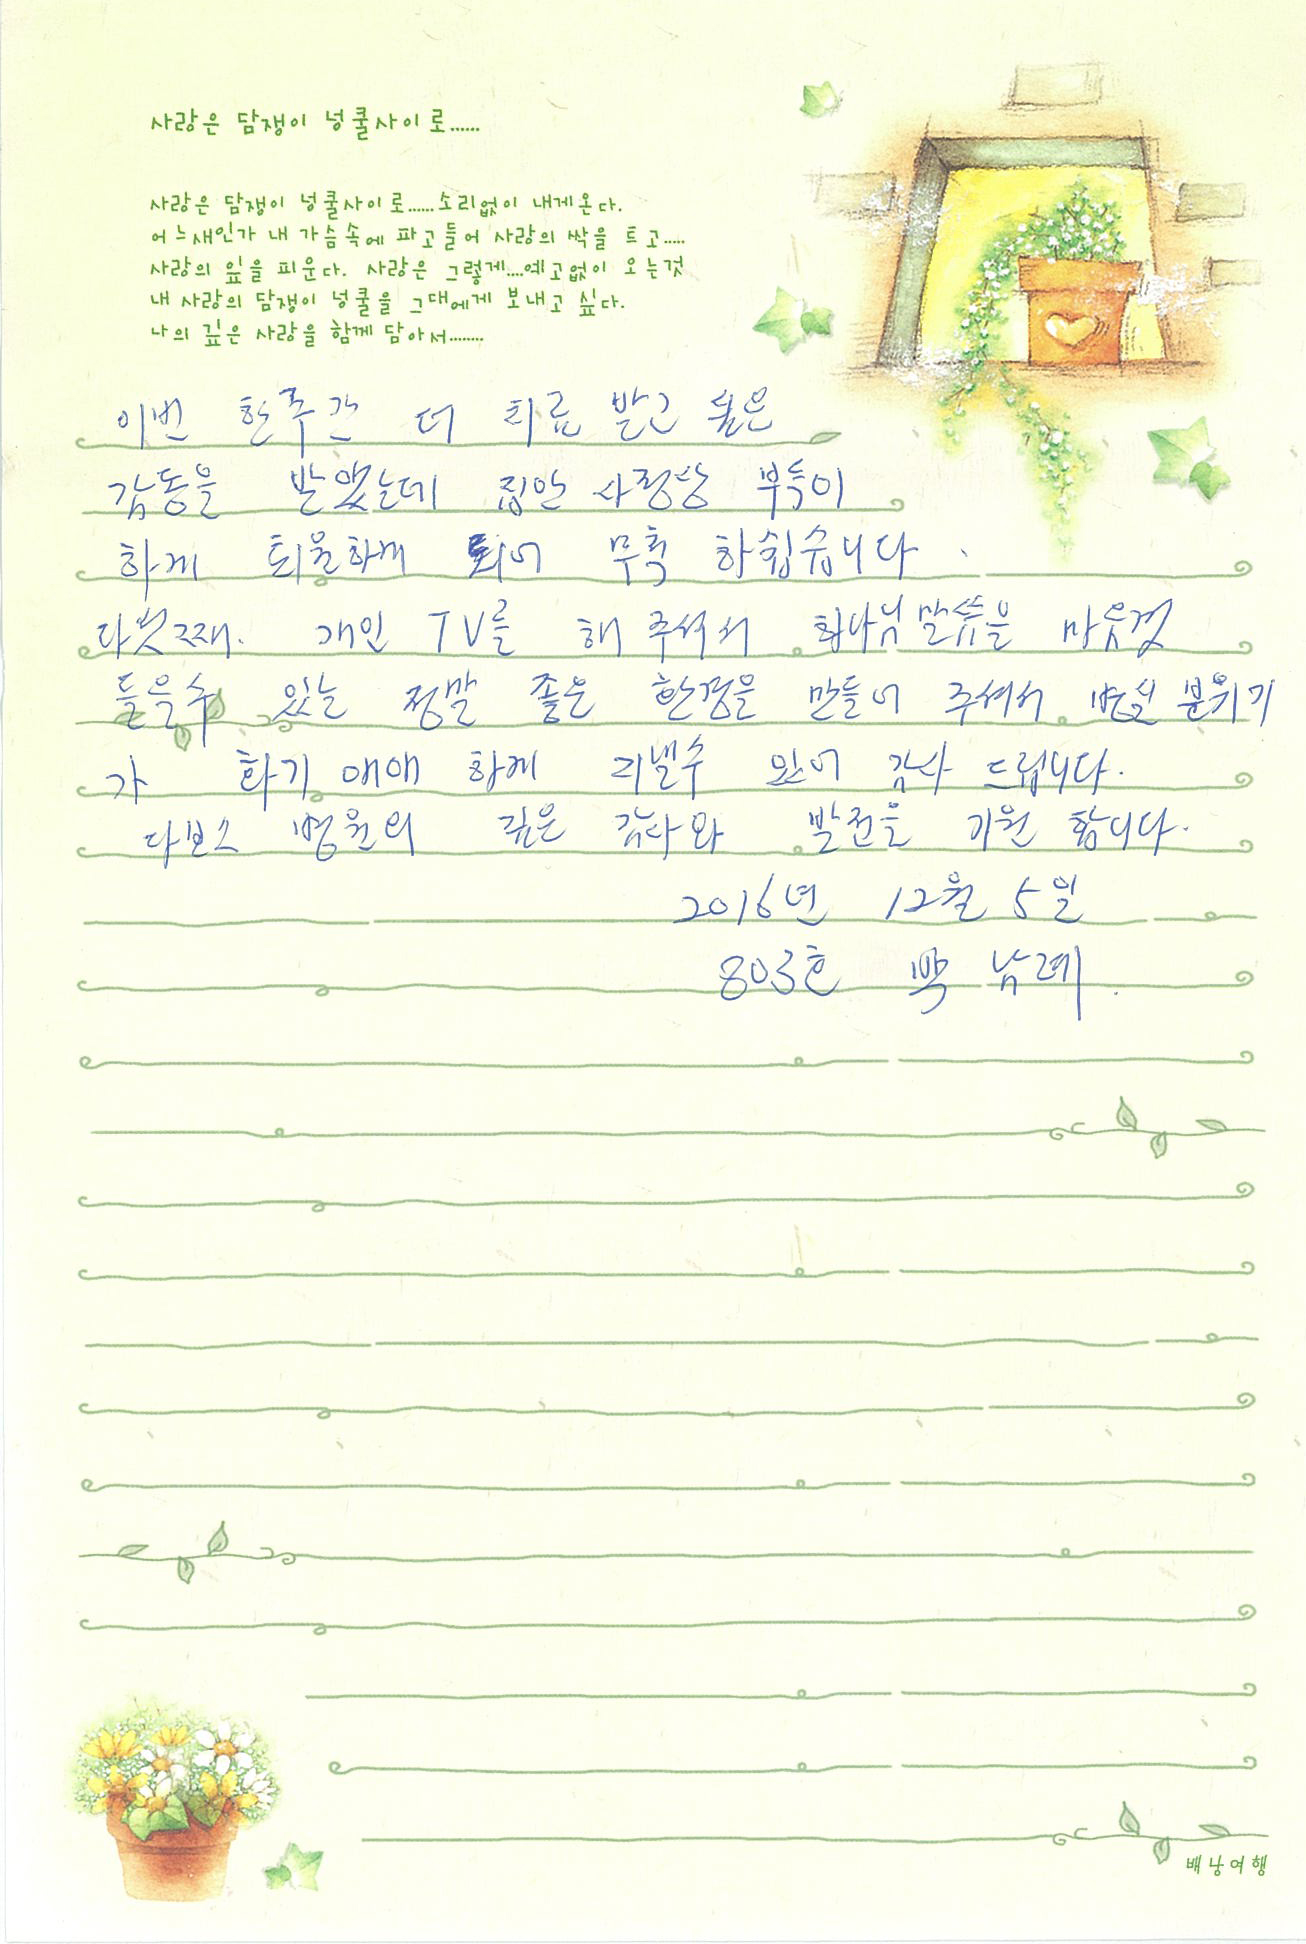 사랑은 담쟁이 넝쿨사이로......
사랑은 담쟁이 넝쿨사이로......소리없이 내게온다.
어느새인가 내 가슴속에 파고들어 사랑의 싹을 트고.....
사랑의 잎을 피운다. 사랑은 그렇게....예고없이 오는것
내 사랑의 담쟁이 넝쿨을 그대에게 보내고 싶다.
나의 깊은 사랑을 함께 담아서........
이번 한주간 더 치료 받고 싶은
감동을 받았는데 집안 사정상 부득이
하게 퇴원하게 되어 무척 하쉽습니다.
다벗째. 개인 TV를 해 주셔서 하나님 말씀을 마음껏
들을수 있는 정말 좋은 환경을 만들어 주셔서 병실 분위기
가 화기 애애 하게 지낼수 있어 감사 드립니다.
다보스 병원의 깊은 감사와 발전을 기원 합니다.
2016년 12월 5일
803호 백 남례.
배낭여행